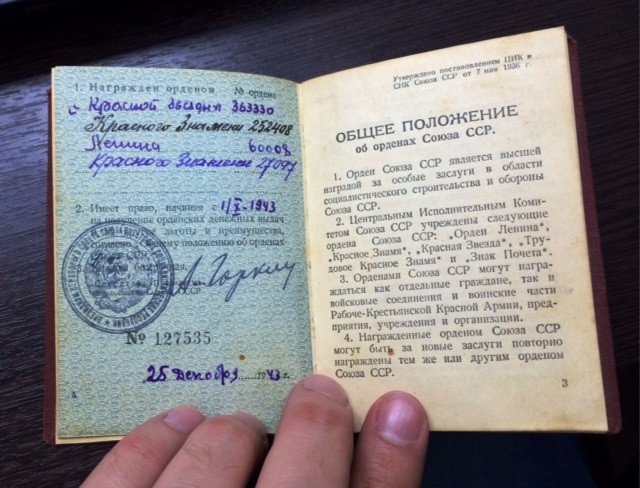 1. Награжден орденом № ордена
Красной Звезды 363330
Красного Знамени 252408
Ленина 60008
Красного Знамени
2. Имеет право, начиная с 1/X-1943
на получение орденских денежных выдач
льготы и преимущества,
положению об орденах
Союза ССР.
Горкин
№ 127535
25 Декабря 1943 г.
Утверждено постановлением ЦИК и
СНК Союза ССР от 7 мая 1936 г.
ОБЩЕЕ ПОЛОЖЕНИЕ
об орденах Союза ССР.
1. Орден Союза ССР является высшей
наградой за особые заслуги в области
социалистического строительства и обороны
Союза ССР.
2. Центральным Исполнительным Коми-
тетом Союза ССР учреждены следующие
ордена Союза ССР: „Орден Ленина",
„Красное Знамя", „Красная Звезда", „Тру-
довое Красное Знамя" и „Знак Почета".
3. Орденами Союза ССР могут награ-
ждаться как отдельные граждане, так и
войсковые соединения и воинские части
Рабоче-Крестьянской Красной Армии, пред-
приятия, учреждения и организации.
4. Награжденные орденом Союза ССР
могут быть за новые заслуги повторно
награждены тем же или другим орденом
Союза ССР.
3